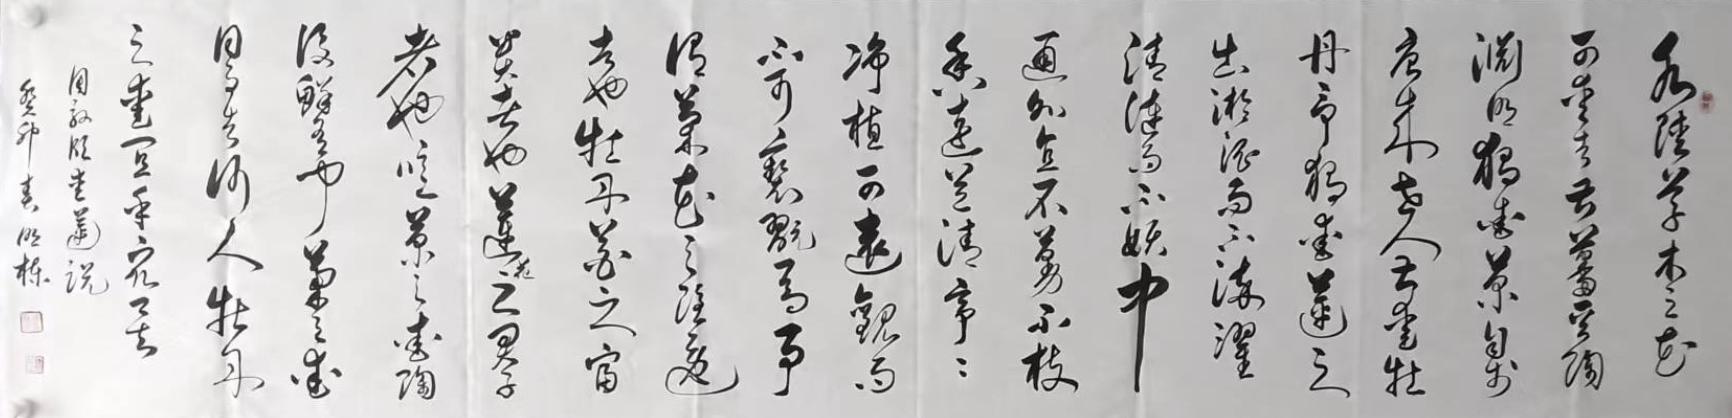 水陸草木之花
可愛者甚蕃晉陶
淵明獨愛菊自李
唐来世人甚愛牡
丹予獨愛蓮之
出淤泥而不染濯
清漣而不妖中
通外直不蔓不枝
香遠益清亭〻
净植可遠觀而
不可褻翫焉予
謂菊花之隱逸
者也牡丹花之富
貴者也蓮花之君子
者也噫菊之愛陶
後鮮有聞蓮之愛
同予者何人牡丹
之愛宜乎衆矣
周敦頤愛蓮説
癸卯春明棟